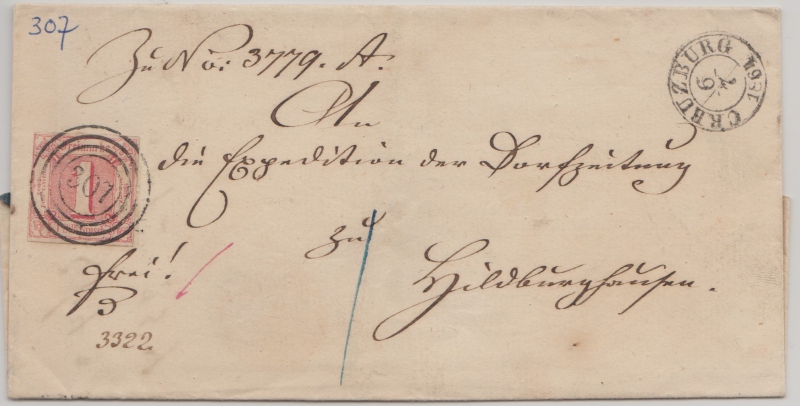 307
Zu No: 3779. A.
CREUZBURG 1861
6/7
An
die Expedition der Dorfzeitung
307
1
zu
frei!
Hildburghausen.
3322